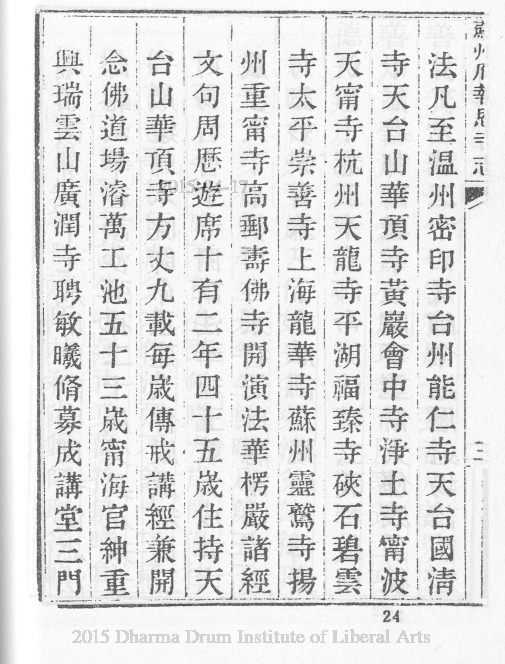 法凡至温州密印寺台州能仁寺天台國清
寺天台山華頂寺黃巖會中寺淨土寺甯波
天甯寺杭州天龍寺平湖福臻寺硤石碧雲
寺太平崇善寺上海龍華寺蘇州靈鷲寺揚
州重甯寺高郵壽佛寺開演法華楞嚴諸經
文句周歷遊席十有二年四十五歲住持天
台山華頂寺方丈九載每歲傳戒講經兼開
念佛道場濬萬工池五十三歲甯海官紳重
興瑞雲山廣潤寺聘敏曦脩募成講堂三門
24
2015 Dharma Drum Institute of Liberal Arts